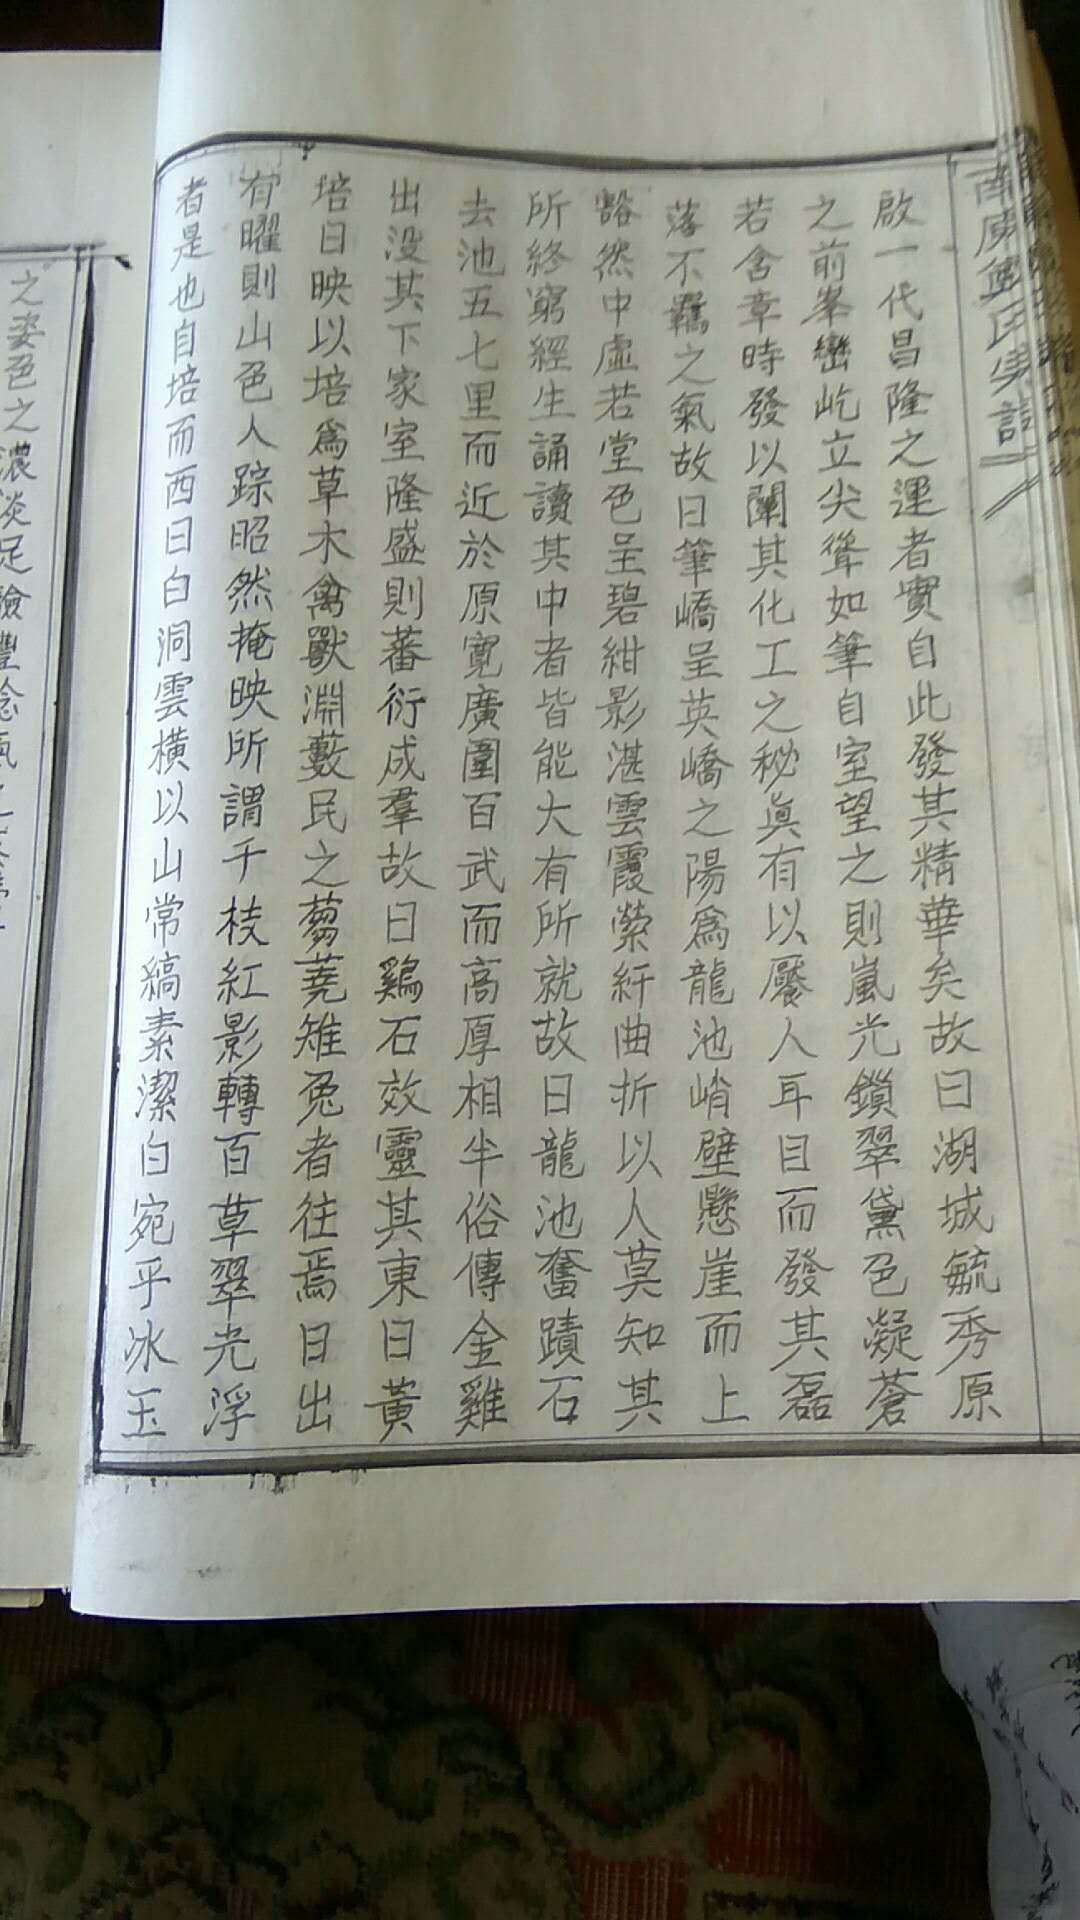 啟一代昌隆之運者實自此發其精華矣故曰湖城毓秀原
之前峯巒屹立尖聳如筆自室望之則嵐光鎖翠黛色凝蒼
若含章時發以闡其化工之秘眞有以饜人耳目而發其磊
落不羈之氣故曰筆嶠呈英嶠之陽爲龍池峭壁懸崖而上
豁然中虛若堂色呈碧紺影湛雲霞縈紆曲折以人莫知其
所終窮經生誦讀其中者皆能大有所就故曰龍池奮蹟石
去池五七里而近於原寬廣圍百武而高厚相半俗傳金雞
出没其下家室隆盛則蕃衍成羣故曰鷄石效靈其東曰黃
培日映以培爲草木禽獸淵藪民之蒭蕘雉兔者往焉日出
有曜則山色人踪昭然掩映所謂千枝紅影轉百草翠光浮
者是也自培而西曰白洞雲橫以山常縞素潔白宛乎冰玉
之姿色之濃淡足驗豐